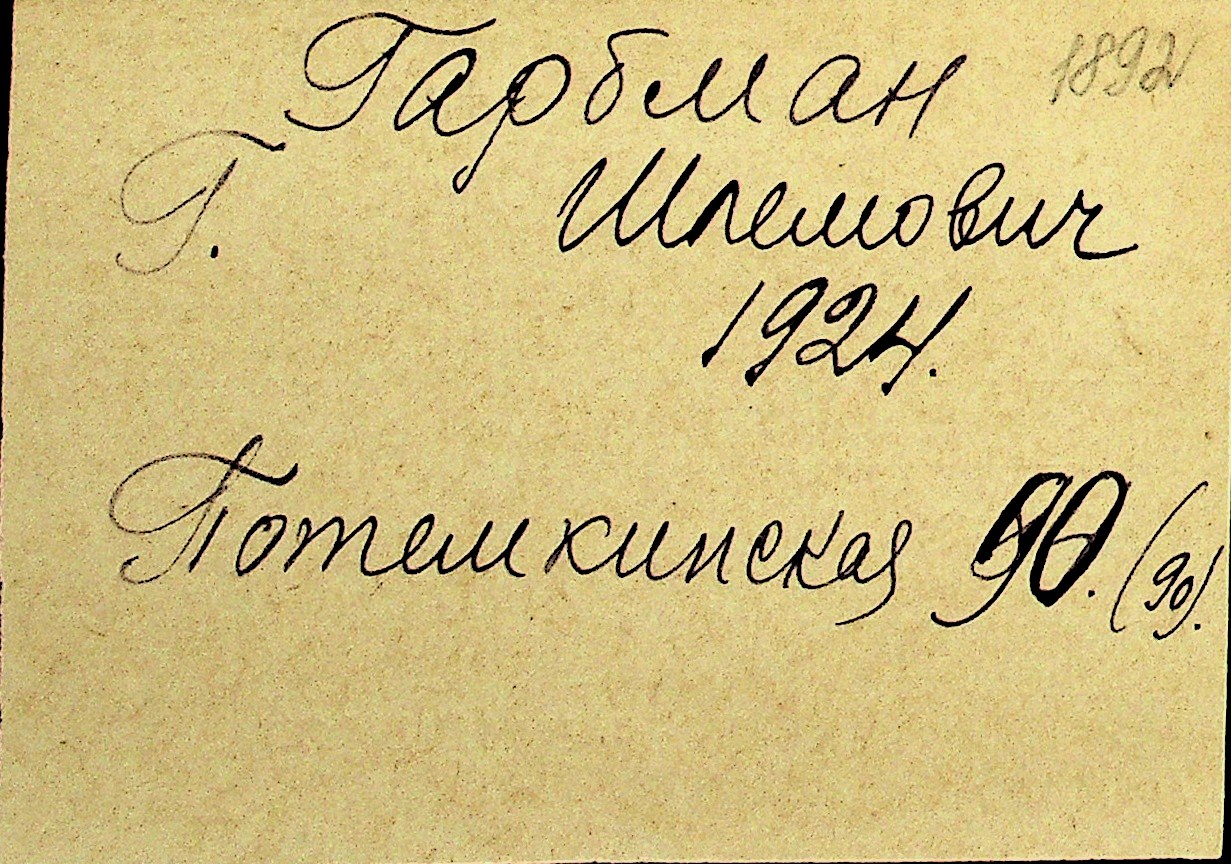 Гарбман 1892
Г. Шлемович
1924.
Потемкинская 90. (90).